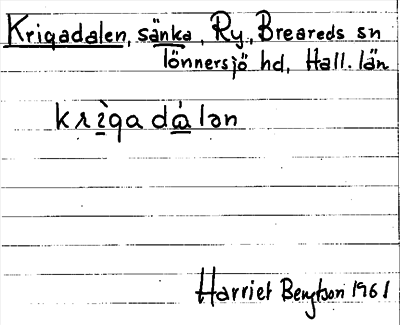 Krigadalen, sänka, Ry, Breareds sn
lönnersjö hd, Hall. län
krìgadàlən
Harriet Bengtson 1961